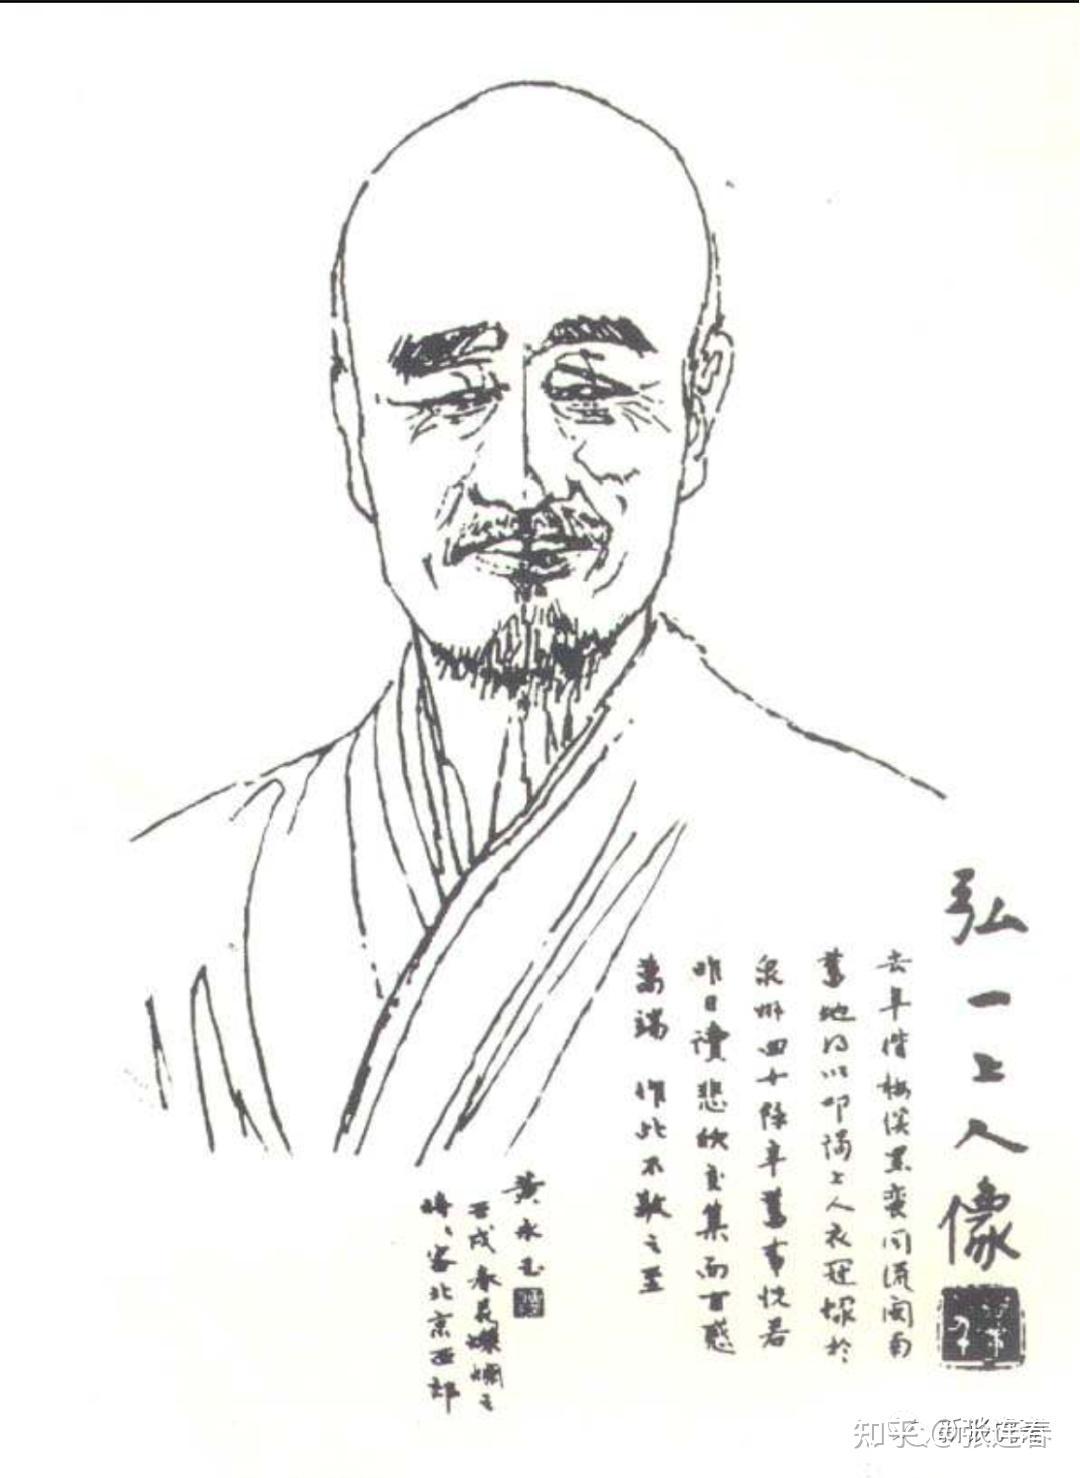 弘一上人像
去年偕梅溪黑蛮同流闽南
旧地得以叩谒上人衣冠塚於
泉州四十馀年旧事恍若
昨日读悲欣交集而百感
萬端 作此不敬之至
黄永玉
壬戌春花爛爛之
時、客北京西郊
知乎 @张连春